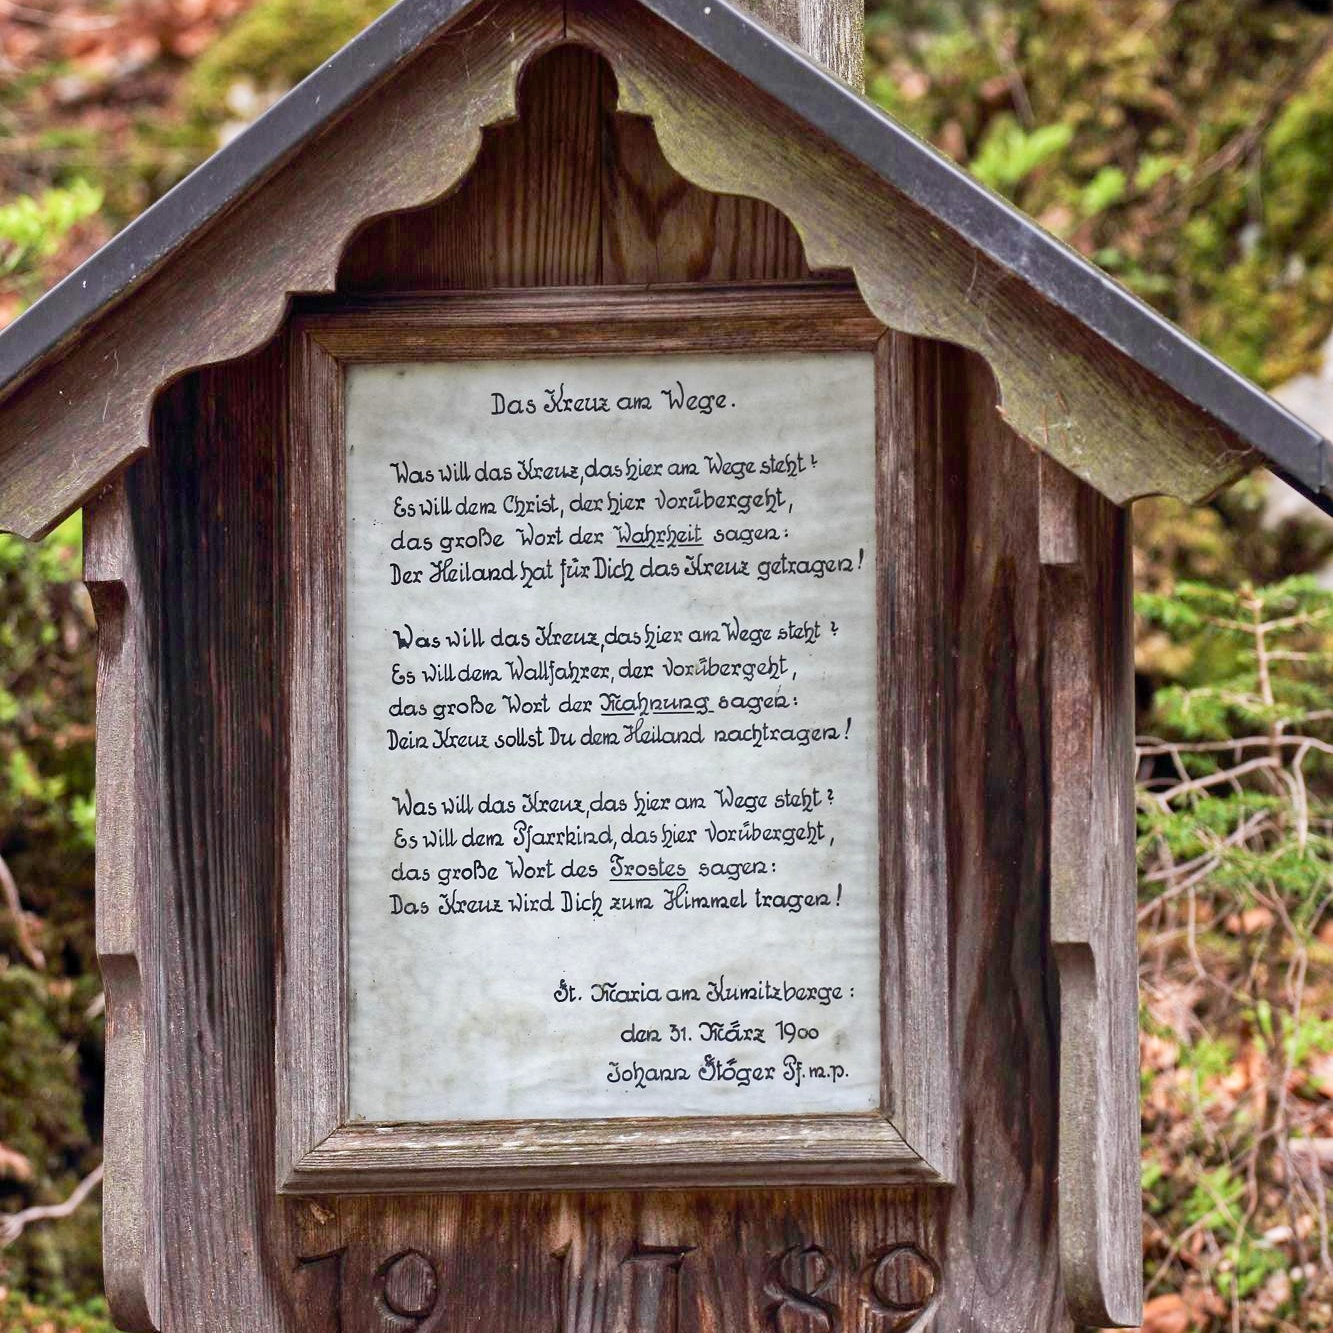 Das Kreuz am Wege.
Was will das Kreuz, das hier am Wege steht?
Es will dem Christ, der hier vorübergeht,
das große Wort der Wahrheit sagen:
Der Heiland hat für Dich das Kreuz getragen!
Was will das Kreuz, das hier am Wege steht?
Es will dem Wallfahrer, der vorübergeht,
das große Wort der Mahnung sagen:
Dein Kreuz sollst Du dem Heiland nachtragen!
Was will das Kreuz, das hier am Wege steht?
Es will dem Pfarrkind, das hier vorübergeht,
das große Wort des Trostes sagen:
Das Kreuz wird Dich zum Himmel tragen!
St. Maria am Kumitzberge:
den 31. März 1900
Johann Stöger Pf. m.p.
19 17 89